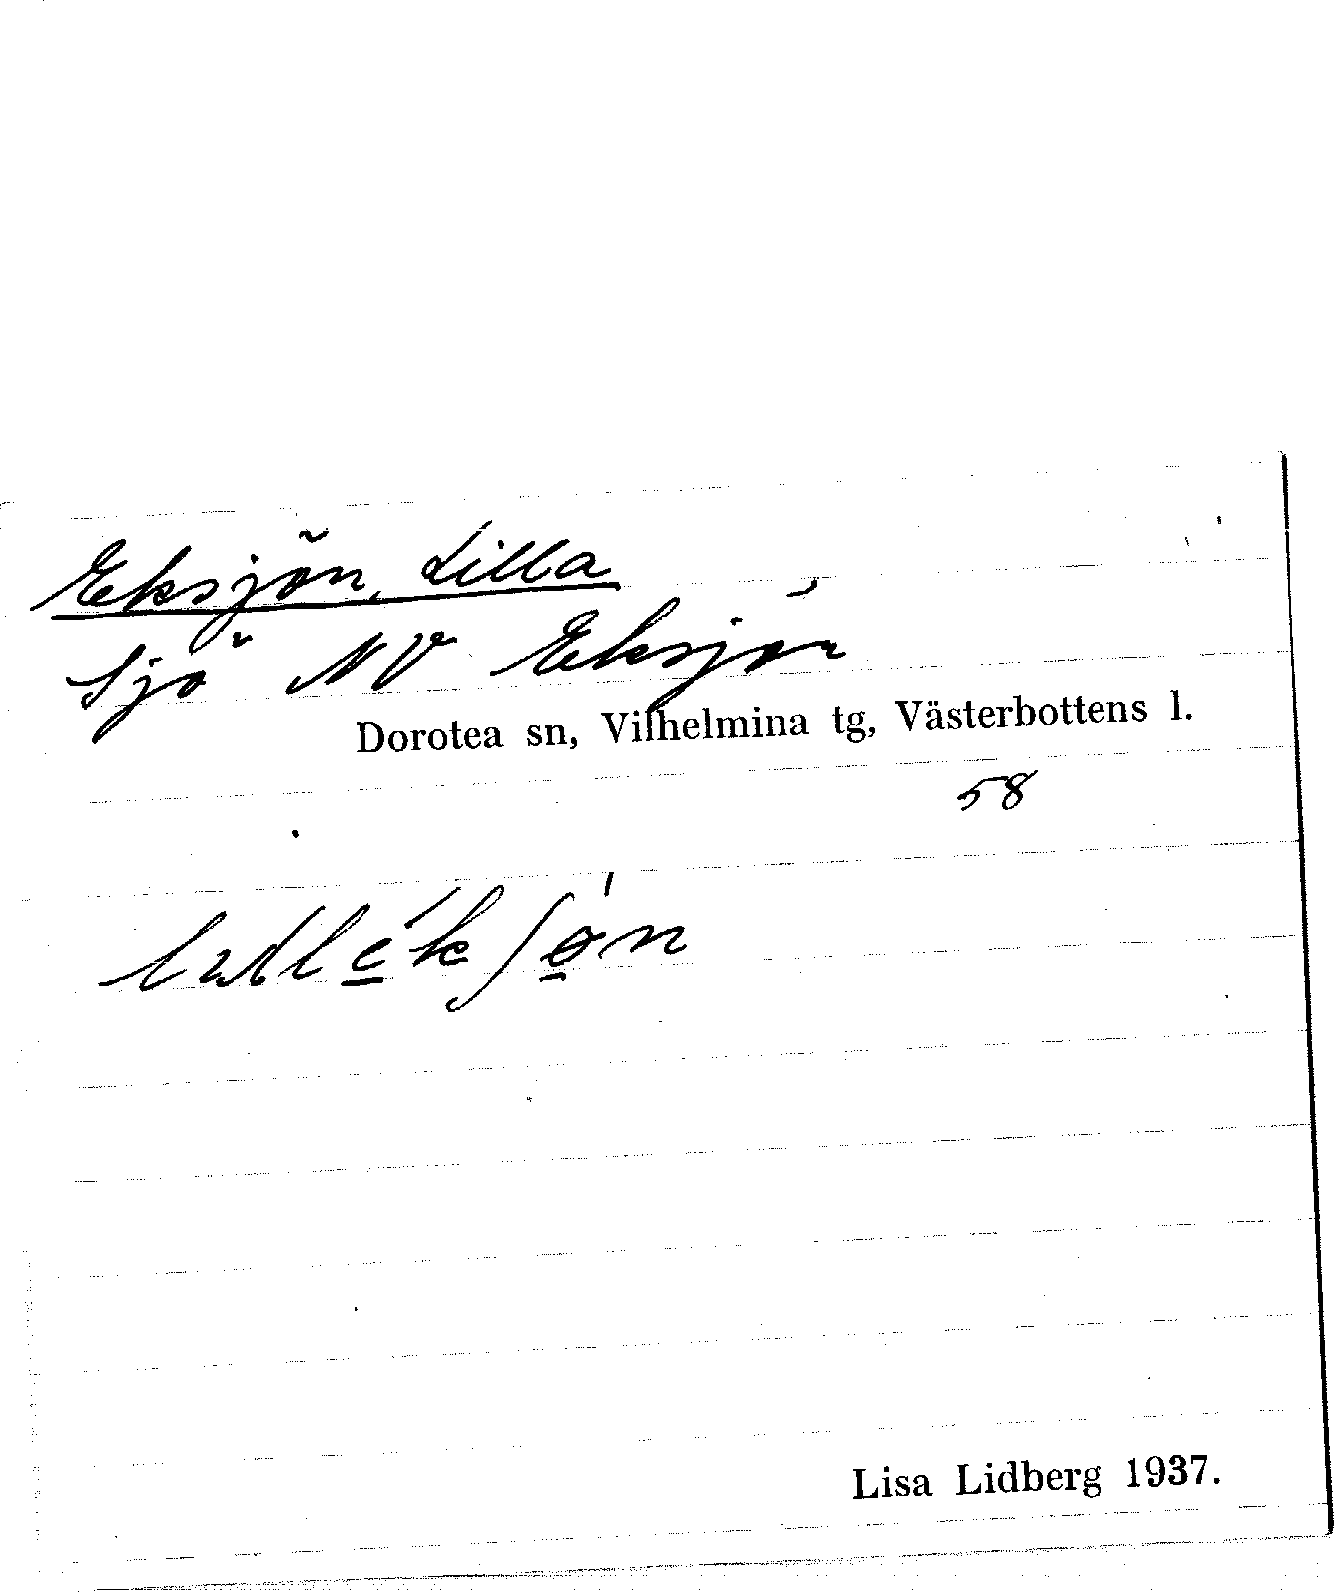 Eksjön, Lilla
Sjö NV Eksjön
Dorotea sn, Vilhelmina tg, Västerbottens l.
58
Lisa Lidberg 1937.